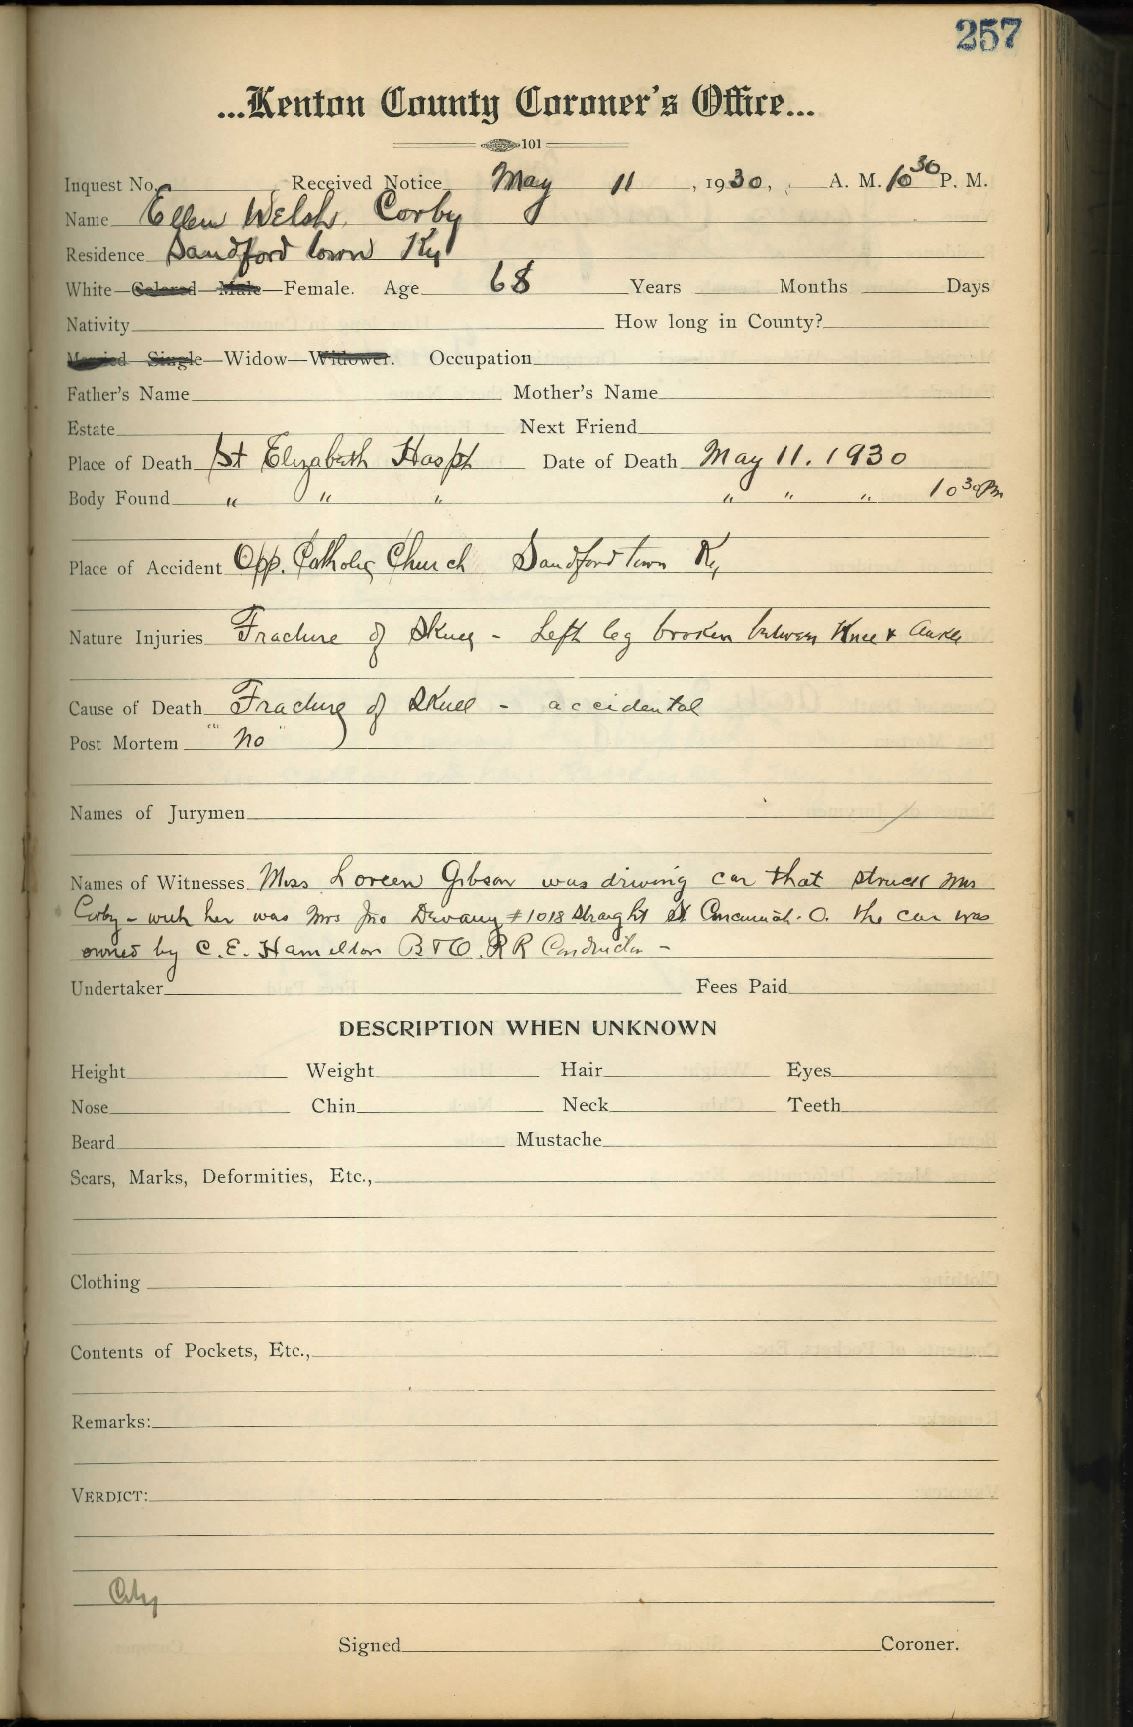 257
...Kenton County Coroner's Office...
101
Inquest No. Received Notice May 11, 1930, A. M. 10 30 P. M.
Name Ellen Welsh Corby
Residence Sandford town Ky
White—Colored—Male—Female. Age 68 Years Months Days
Nativity How long in County?
Married—Single—Widow—Widower. Occupation
Father's Name Mother's Name
Estate Next Friend
Place of Death St Elizabeth Hospt Date of Death May 11. 1930
Body Found " " " " " " 10 30 Pm
Place of Accident Opp. Catholic Church Sandford town Ky
Nature Injuries Fracture of Skull - Left leg broken between Knee & Ankle
Cause of Death Fracture of Skull - accidental
Post Mortem " no "
Names of Jurymen
Names of Witnesses Miss Loreen Gibson was driving car that struck Mrs
Corby - with her was Mrs Jno Devany # 1018 Straight St Cincinnati. O. the car was
owned by C. E. Hamilton B & O. R R Conductor -
Undertaker Fees Paid
DESCRIPTION WHEN UNKNOWN
Height Weight Hair Eyes
Nose Chin Neck Teeth
Beard Mustache
Scars, Marks, Deformities, Etc.,
Clothing
Contents of Pockets, Etc.,
Remarks:
VERDICT:
City
Signed Coroner.